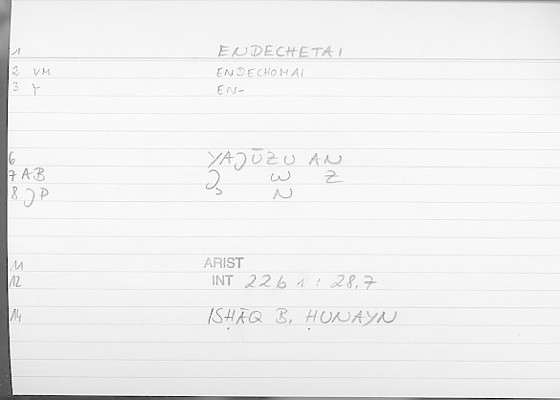 1 ENDECHETAI
2 VM ENDECHOMAI
3 Y EN-
6 YAJŪZU AN
7 AB J W Z
8 JP S N
11 ARIST
12 INT 22b1: 28,7
14 ISḤĀQ B. ḤUNAYN